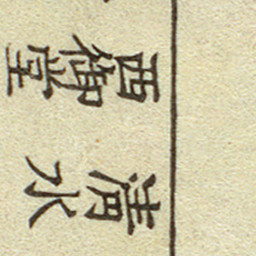 西御堂
清水